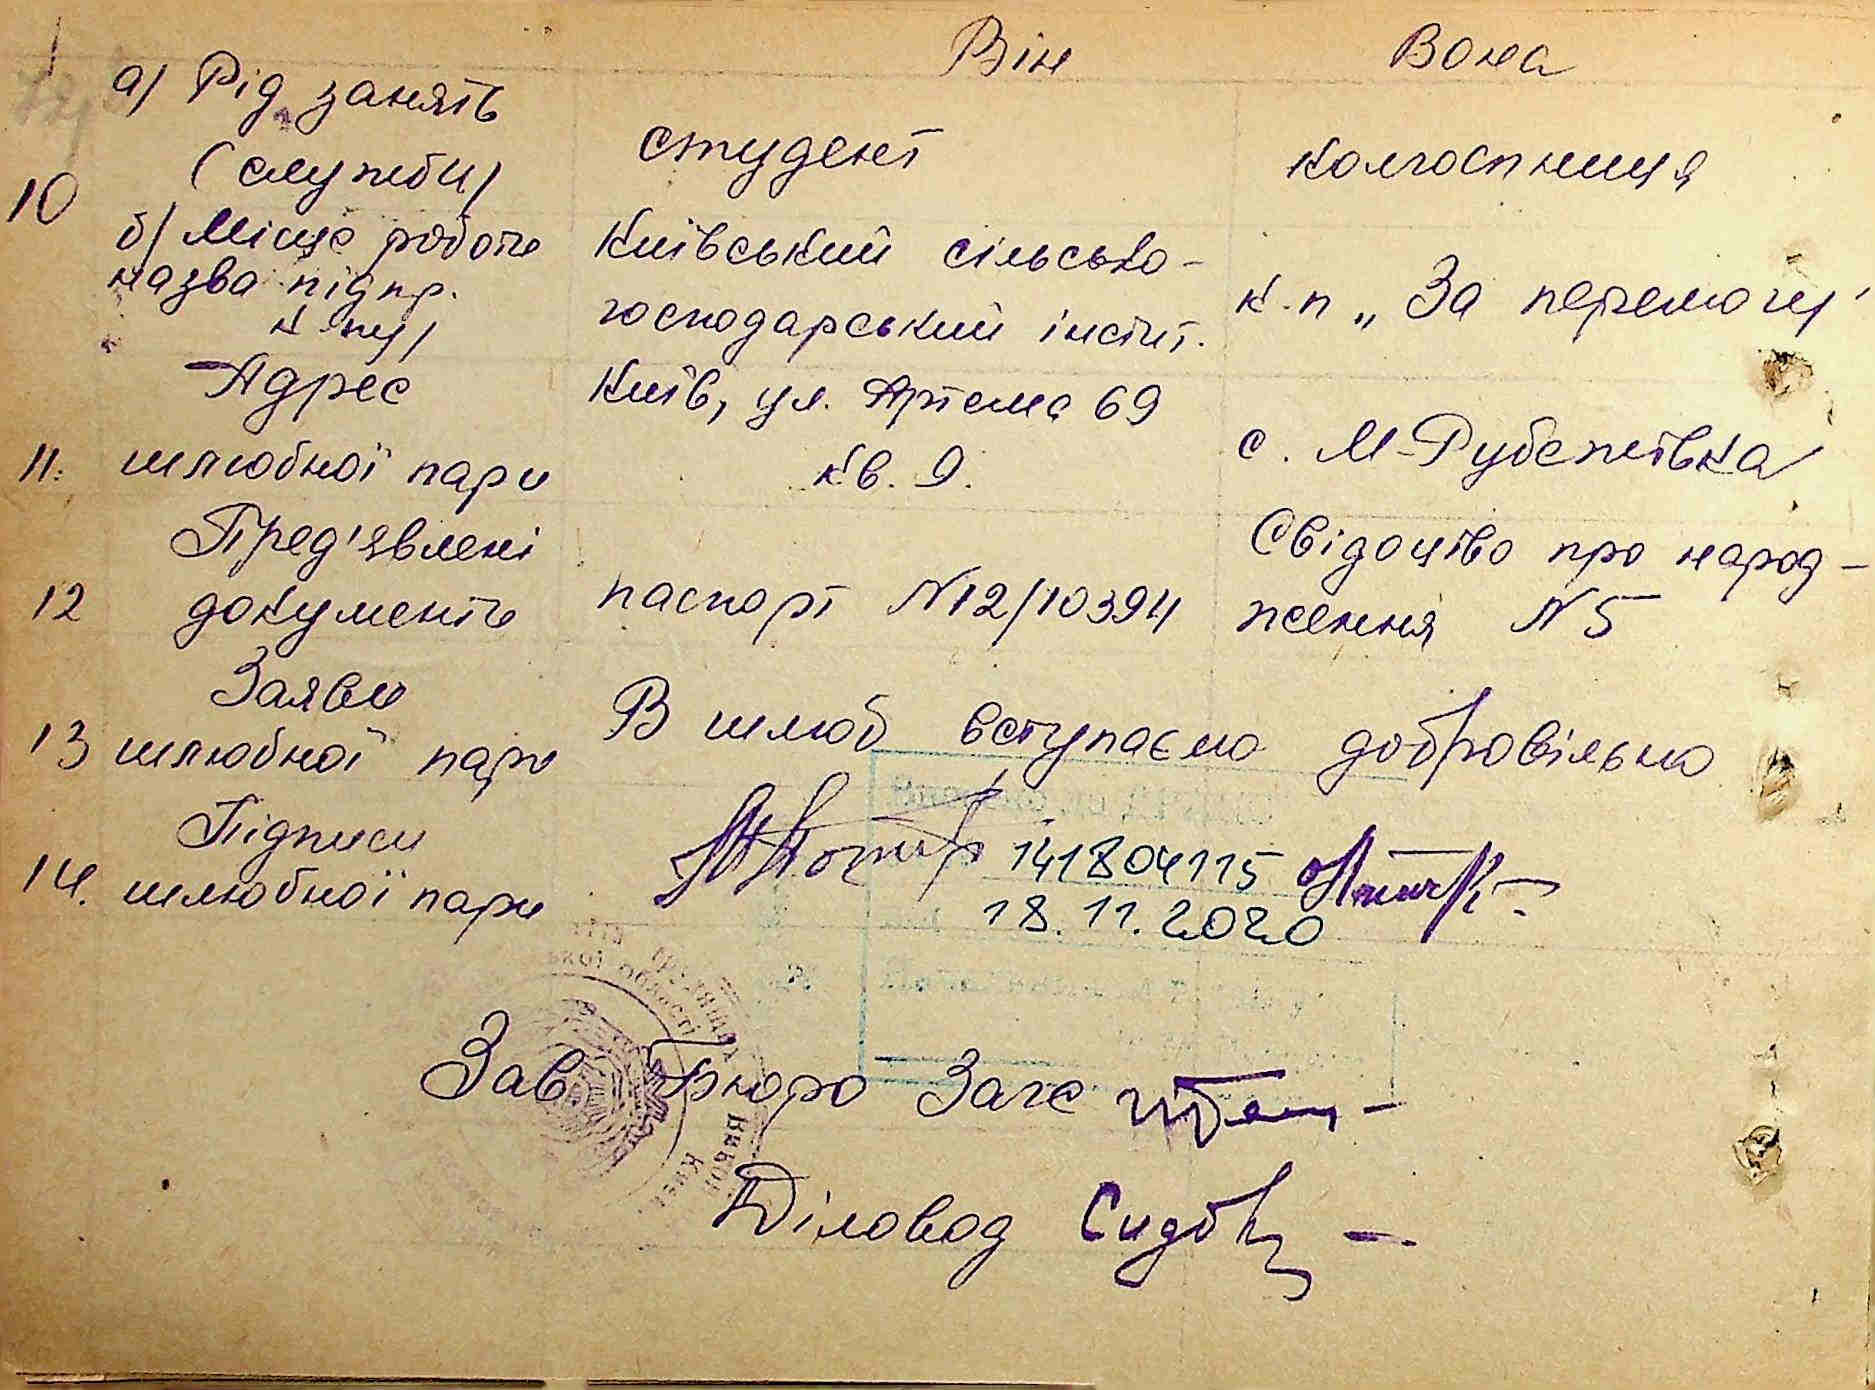 Він Вона
а) Рід занять
(служби) студент колгоспниця
10
б) Місце роботи Київський сільсько-
назва підпр. господарський інстит. к-п „За перемогу"
к-пу)
Адрес Київ, ул. Артема 69
11. шлюбної пари кв. 9. с. М-Рубежівка
Пред'явлені Свідоцтво про народ-
12 документи паспорт N12/10394 ження N5
Заяви
13 шлюбної пари В шлюб вступаємо добровільно
Підписи
14. шлюбної пари 141804115
18.11.2020
Зав. Бюро Загс
Діловод